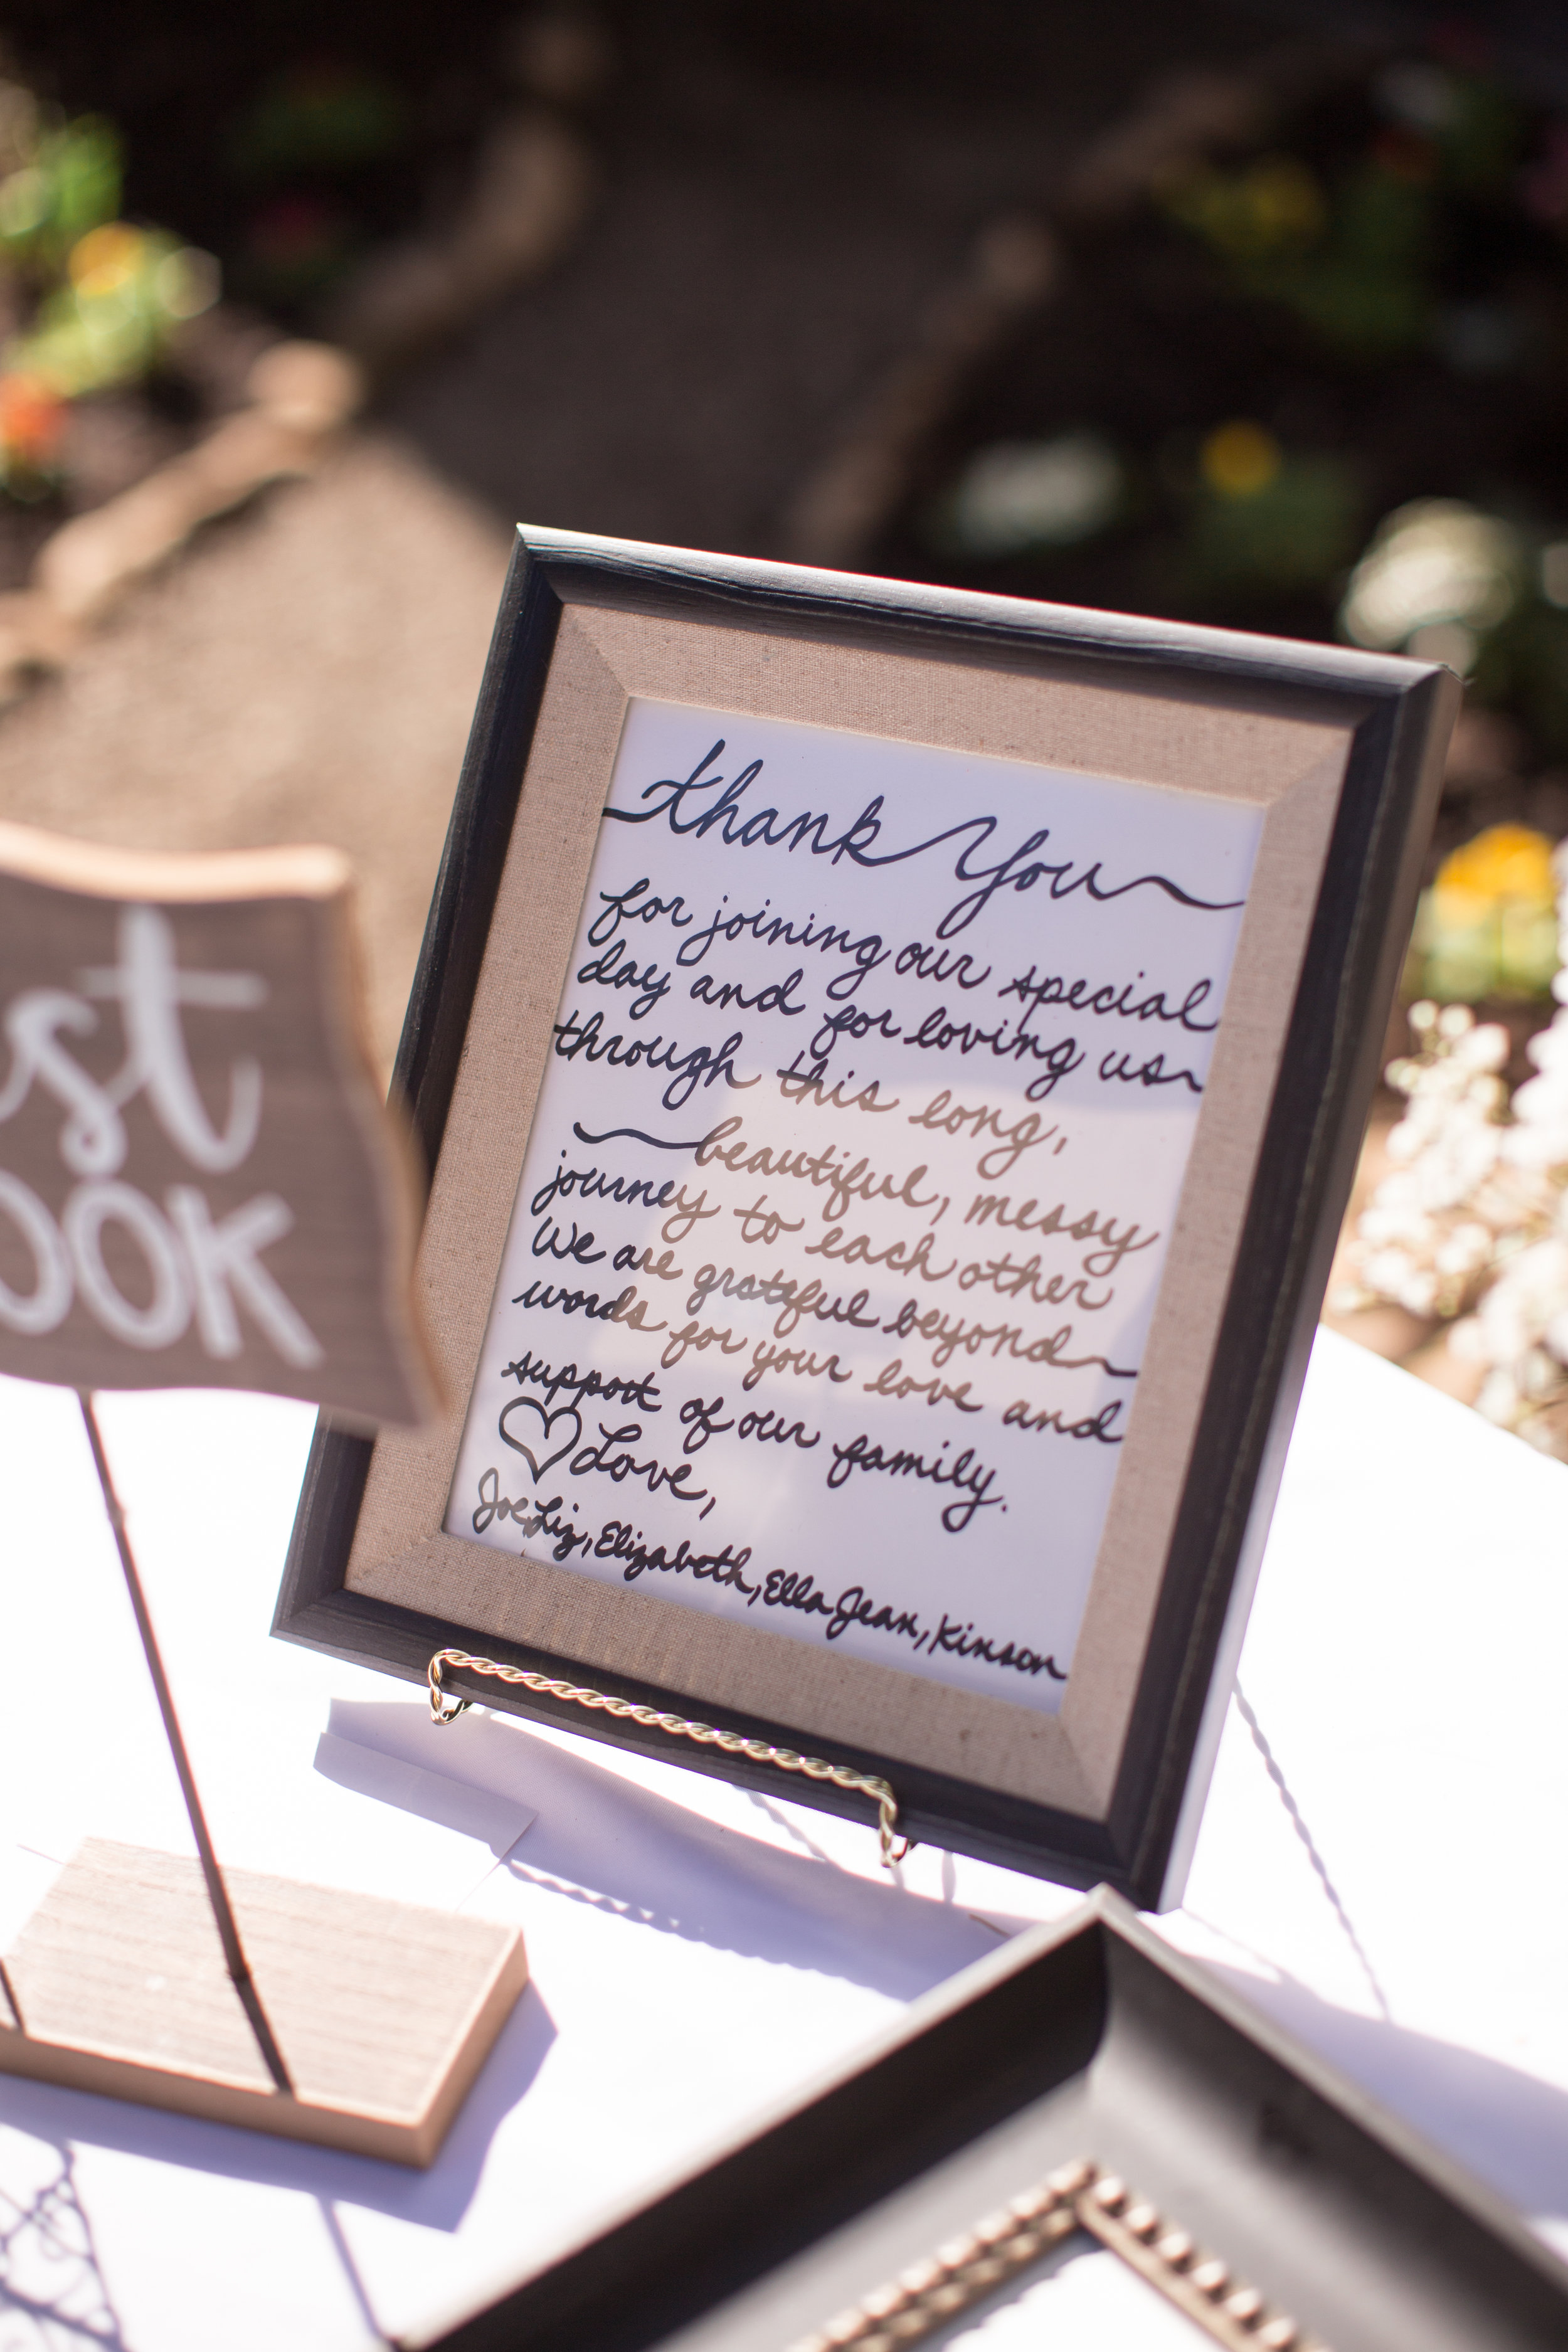 thank you
for joining our special
day and for loving us
through this long,
beautiful, messy
journey to each other
We are grateful beyond
words for your love and
support of our family.
♡ Love,
Joe, Liz, Elizabeth, Ella Jean, Kinson
st
OOK